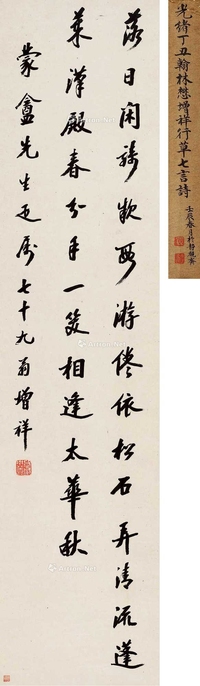 光緒丁丑翰林樊增祥行草七言詩
壬辰春月於靜觀齋
落日閑騎款段游倦依松石弄清流蓬
萊漢殿春分手一笑相逢太華秋
蒙盦先生疋屬七十九翁增祥